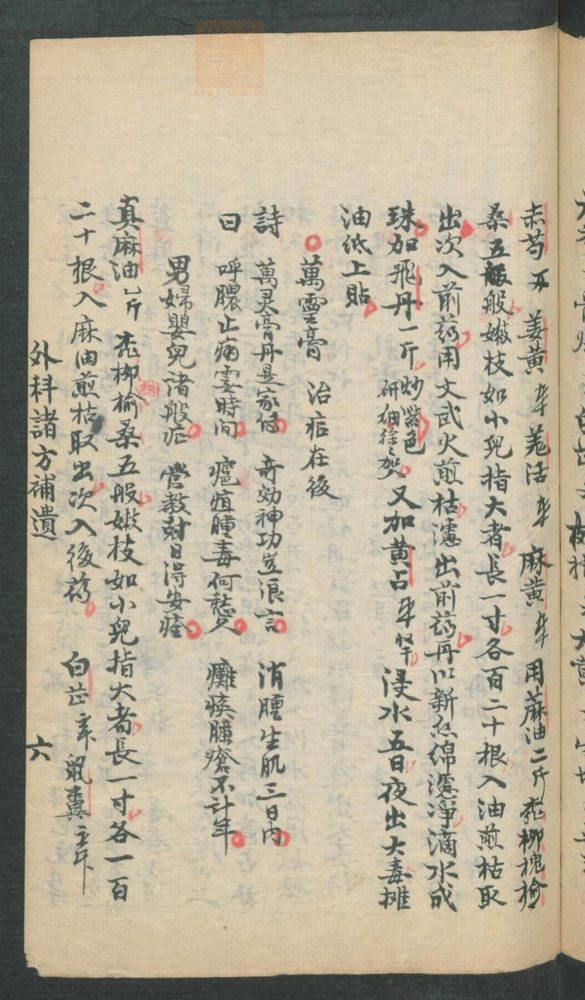 赤芍 姜黄 羌活 麻黄 用蔴油二斤 桃柳槐榆
桑五般嫩枝如小兒指大者長一寸各百二十根入油煎枯取
出次入前葯用文武火煎枯濾出前葯再以新絲綿濾净滴水成
珠加飛丹一斤炒紫色研細徐徐加 又加黄占 浸水五日夜出大毒摊
油纸上貼
萬靈膏 治症在後
詩 萬灵膏丹是家傳 奇効神功豈浪言 消腫生肌三日内
曰 呼膿止痛霎時间 癧疽腫毒何愁久 癱瘓臁瘡不计年
男婦嬰兒諸般症 管教尅日得安痊
真麻油斤 桃柳榆槐桑五般嫩枝如小兒指大者長一寸各一百
二十根入麻油煎枯取出次入後葯 白芷 鼠糞
外科諸方補遺 六